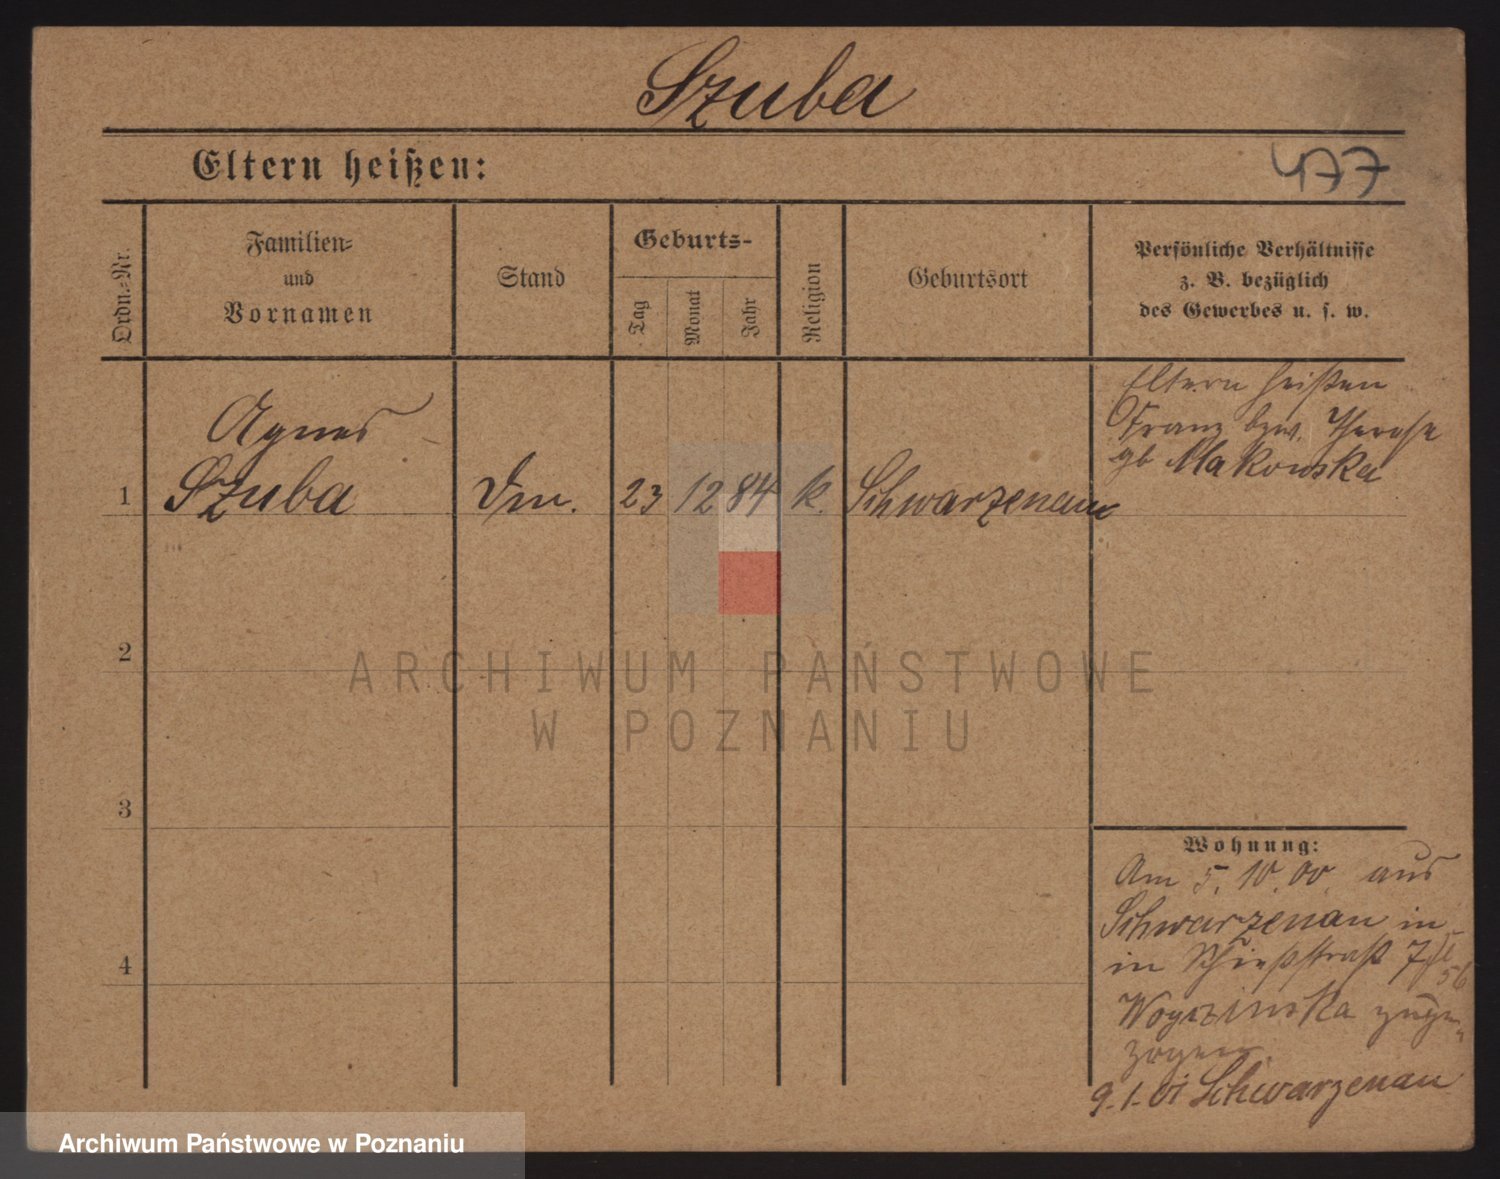 Szuba
Eltern heißen:
477
Ordn.-Nr.
Familien-
und
Vornamen
Stand
Geburts-
Tag
Monat
Jahr
Religion
Geburtsort
Persönliche Verhältnisse
z. B. bezüglich
des Gewerbes u. s. w.
Agnes
1 Szuba Dm. 23 12 84 k. Schwarzenau
Eltern heißen
Franz bzw. Therese
gb Makowska
2
3
4
Wohnung:
Am 5. 10. 00. aus
Schwarzenau in
in Schießstraß 7
Woyzinska zuge-
zogen.
9. 1. 01 Schwarzenau
ARCHIWUM PAŃSTWOWE
W POZNANIU
Archiwum Państwowe w Poznaniu